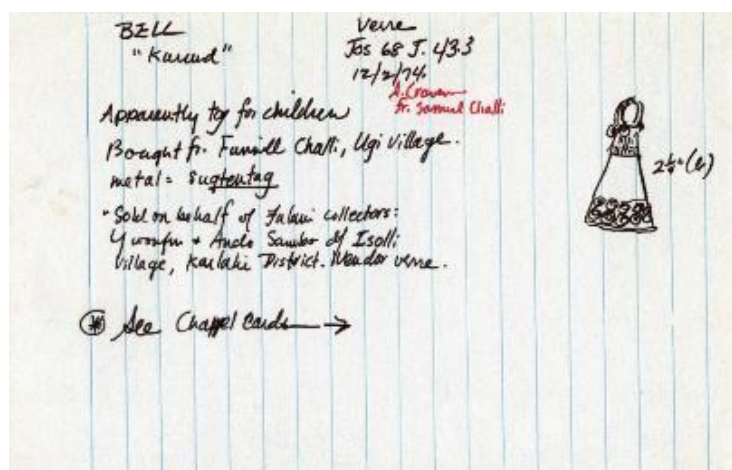 BELL
"Karud"
Verre
Jos 68 J. 433
12/2/74
A. Craven
fr. Samuel Challi
Apparently toy for children
Bought fr. Challi, Ugi Village.
metal =
2¼" (h)
• Sold on behalf of Fulani collectors:
+ Ando of Isolli
Village, District. Vendor verre.
* See Chappel Cards →